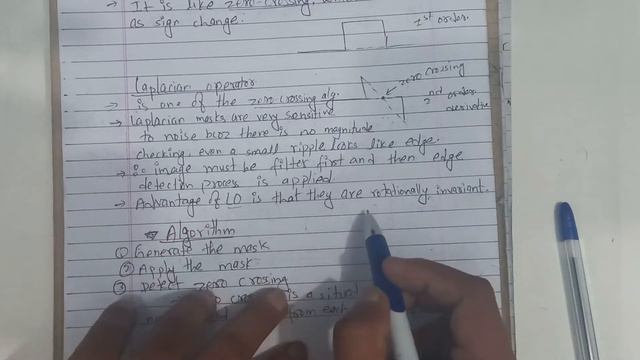 → It is like zero-crossing,
as sign change.
1st order
Laplacian operator
→ is one of the zero crossing alg.
zero crossing
2nd order
derivative
→ Laplacian masks are very sensitive
to noise bcoz there is no magnitude
checking, even a small ripple looks like edge.
→ So image must be filter first and then edge
detection process is applied.
→ Advantage of LO is that they are rotationally invariant.
Algorithm
① Generate the mask
② Apply the mask
③ Detect zero crossing
is a
from each